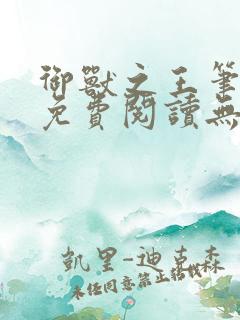 御獸之王筆
免費閱讀無
凱里-迪克森
未經同意禁止轉載